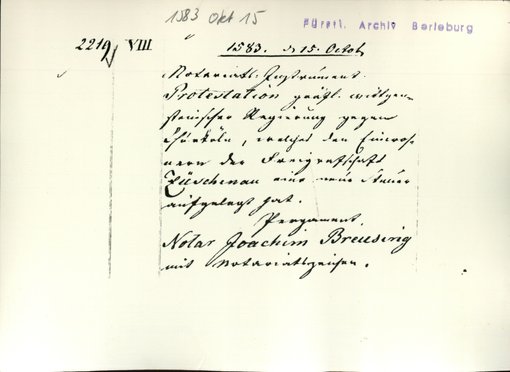 1583 Okt 15
Fürstl. Archiv Berleburg
2219 VIII. 1583. d 15. Octob
Notariatl. Instrument.
Protestation gräfl. wittgen-
steinischer Regierung gegen
Churköln, welches den Einwoh
nern der Freigrafschaft
Züschenau eine neue Steuer
aufgelegt hat.
Pergament.
Notar Joachim Breusing
mit Notariatszeichen.